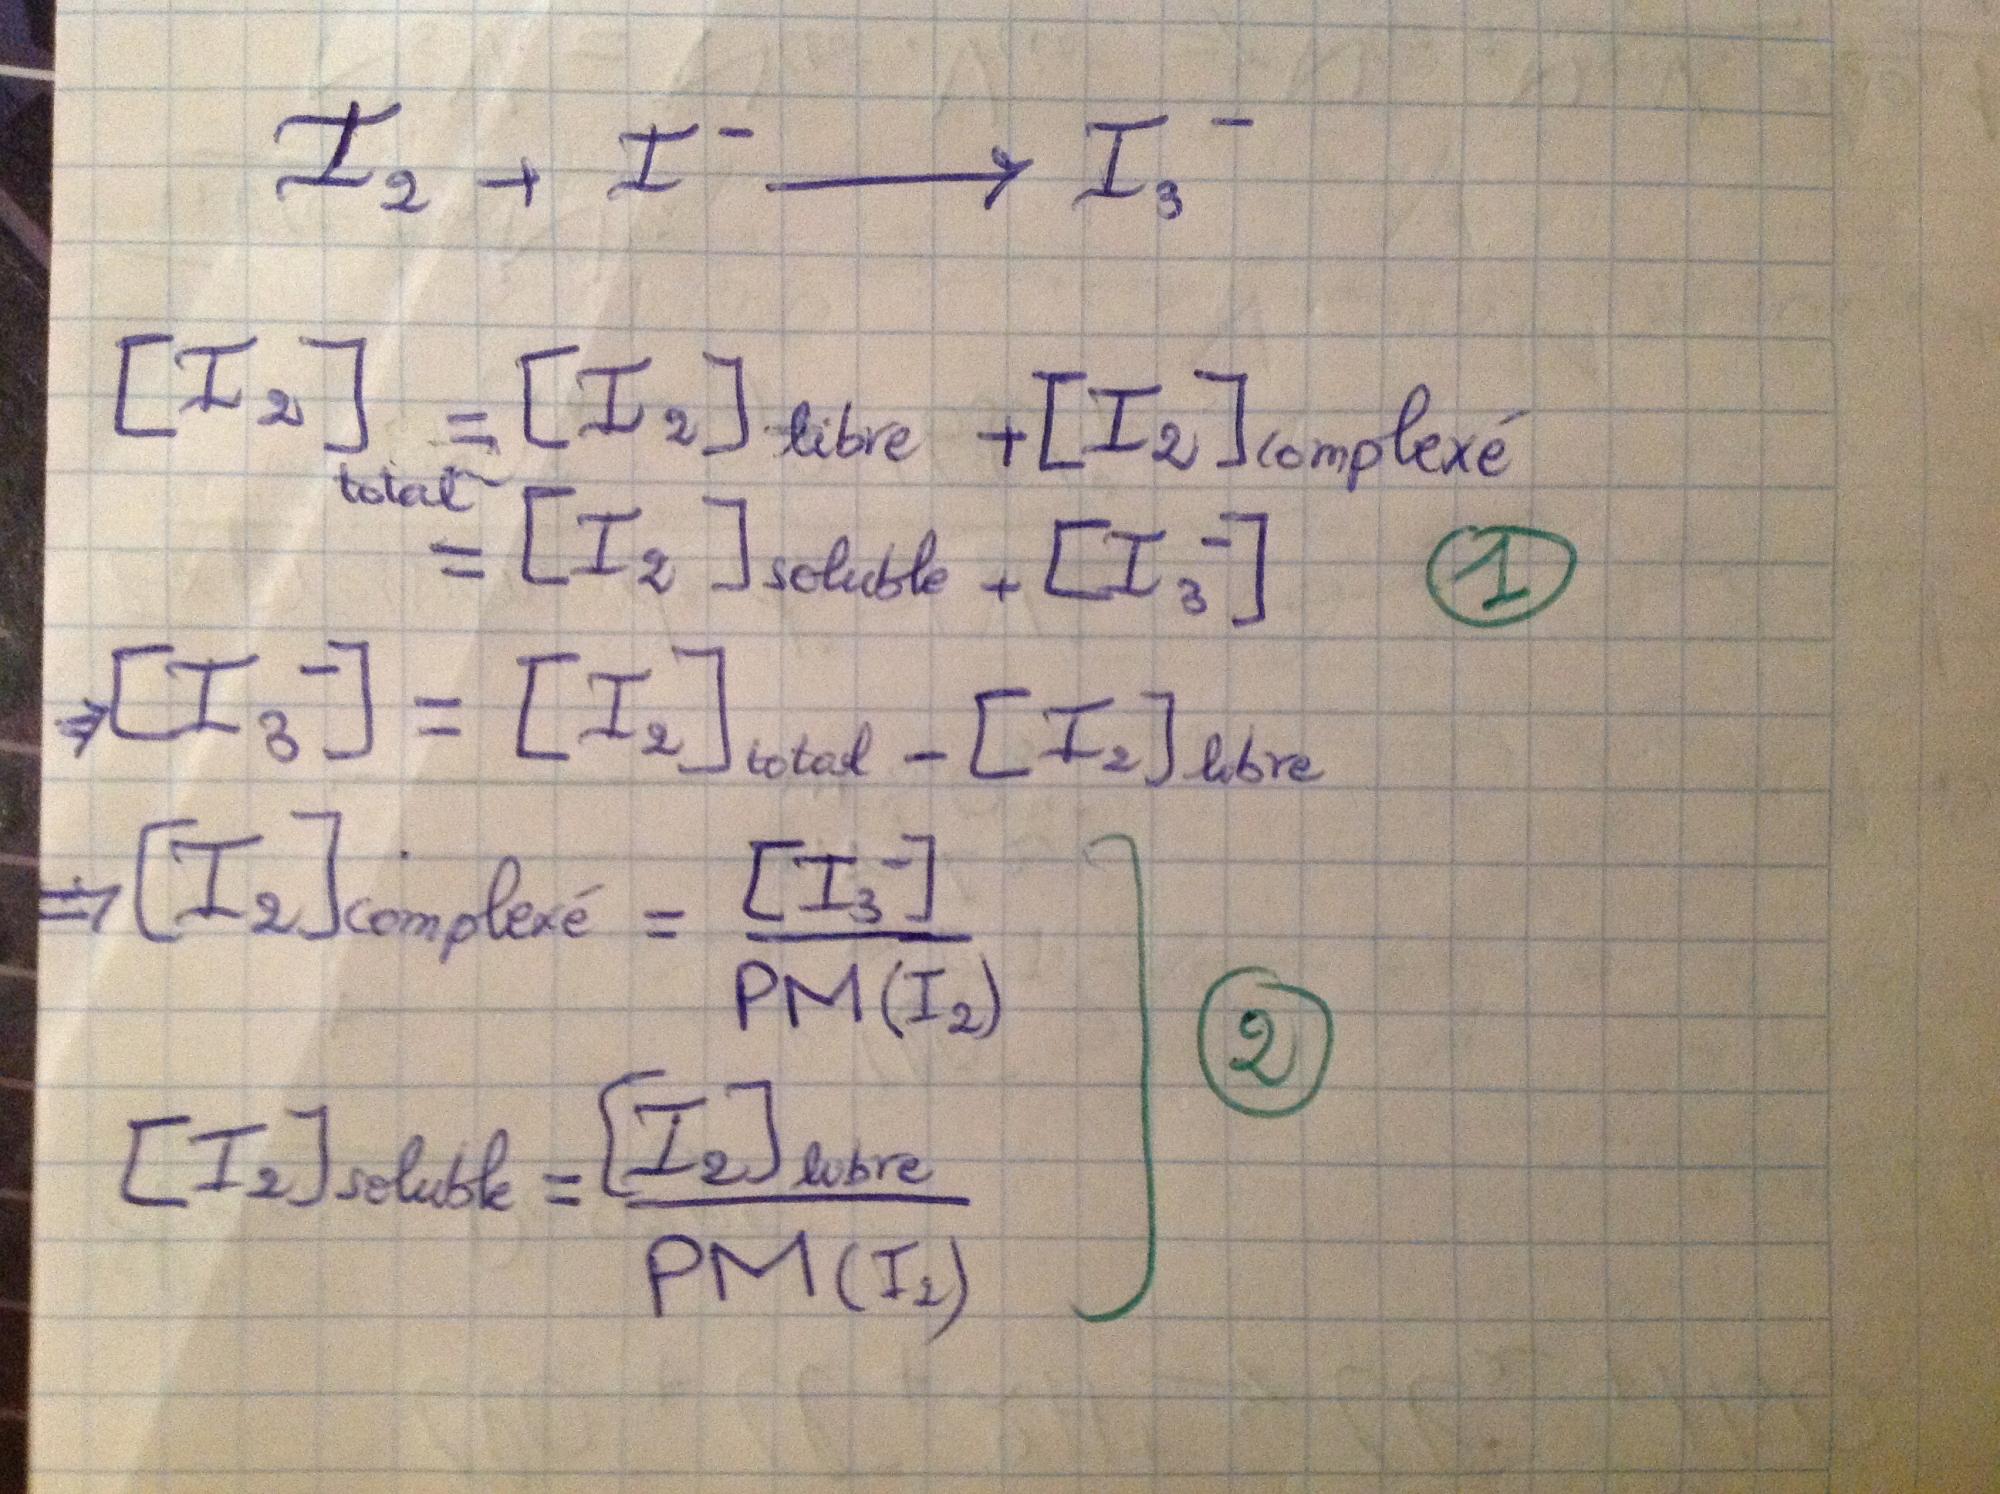 I₂ + I⁻ ⟶ I₃⁻
[I₂]total = [I₂]libre + [I₂]complexé
= [I₂]soluble + [I₃⁻] ①
⇒ [I₃⁻] = [I₂]total - [I₂]libre
⇒ [I₂]complexé = [I₃⁻] / PM(I₂)
②
[I₂]soluble = [I₂]libre / PM(I₂)